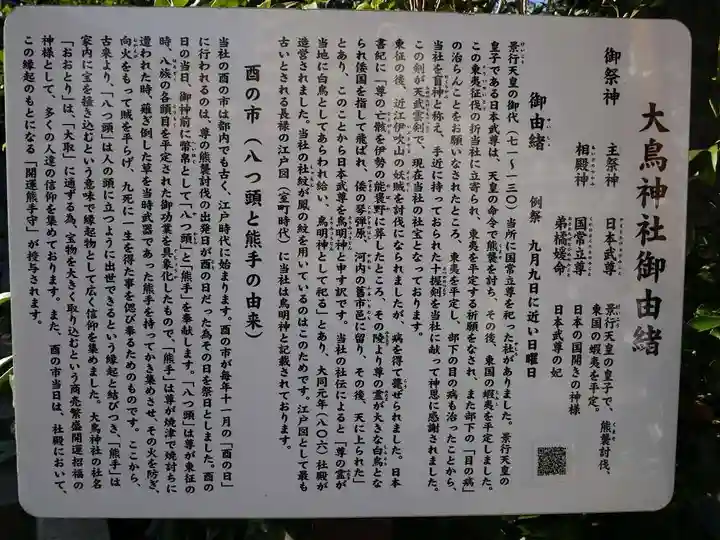 大鳥神社御由緒
御祭神　主祭神　日本武尊　景行天皇の皇子で、熊襲討伐、
東国の蝦夷を平定。
相殿神　国常立尊　日本の国開きの神様
弟橘媛命　日本武尊の妃
御由緒　例祭　九月九日に近い日曜日
景行天皇の御代（七一～一三〇）当所に国常立尊を祀った社がありました。景行天皇の
皇子である日本武尊は、天皇の命令で熊襲を討ち、その後、東国の蝦夷を平定しました。
この東夷征伐の折当社に立寄られ、東夷を平定する祈願をなされ、また部下の「目の病」
の治らんことをお願いなされたところ、東夷を平定し、部下の目の病も治ったことから、
当社を盲神と称え、手近に持っておられた十握剣を当社に献って神恩に感謝されました。
この剣が天武雲剣で、現在当社の社宝となっております。
東征の後、近江伊吹山の妖賊を討伐になられましたが、病を得て薨ぜられました。日本
書紀に「尊の亡骸を伊勢の能褒野に葬したところ、その陵より尊の霊が大きな白鳥とな
られ倭国を指して飛ばれ、倭の琴弾原、河内の舊市邑に留り、その後、天に上られた」
とあり、このことから日本武尊を鳥明神と申す訳です。当社の社伝によると「尊の霊が
当地に白鳥としてあらわれ給い、鳥明神として祀る」とあり、大同元年（八〇六）社殿が
造営されました。当社の社紋が鳳の紋を用いているのはこのためです。江戸図として最も
古いとされる長禄の江戸図（室町時代）に当社は鳥明神と記載されております。
酉の市（八つ頭と熊手の由来）
当社の酉の市は都内でも古く、江戸時代に始まります。酉の市が毎年十一月の「酉の日」
に行われるのは、尊の熊襲討伐の出発日が酉の日だった為その日を祭日としました。酉の
日の当日、御神前に幣帛として「八つ頭」と「熊手」を奉献します。「八つ頭」は尊が東征の
時、八族の各頭目を平定された御功業を具象化したもので、「熊手」は尊が焼津で焼討ちに
遭われた時、薙ぎ倒した草を当時武器であった熊手を持ってかき集めさせ、その火を防ぎ、
向火をもって賊を平らげ、九死に一生を得た事を偲び奉るためのものです。ここから、
古来より、「八つ頭」は人の頭に立つように出世できるという縁起と結びつき、「熊手」は
家内に宝を掻き込むという意味で縁起物として広く信仰を集めました。大鳥神社の社名
「おおとり」は、「大取」に通ずる為、宝物を大きく取り込むという商売繁盛開運招福の
神様として、多くの人達の信仰を集めております。また、酉の市当日は、社殿において、
この縁起のもとになる「開運熊手守」が授与されます。